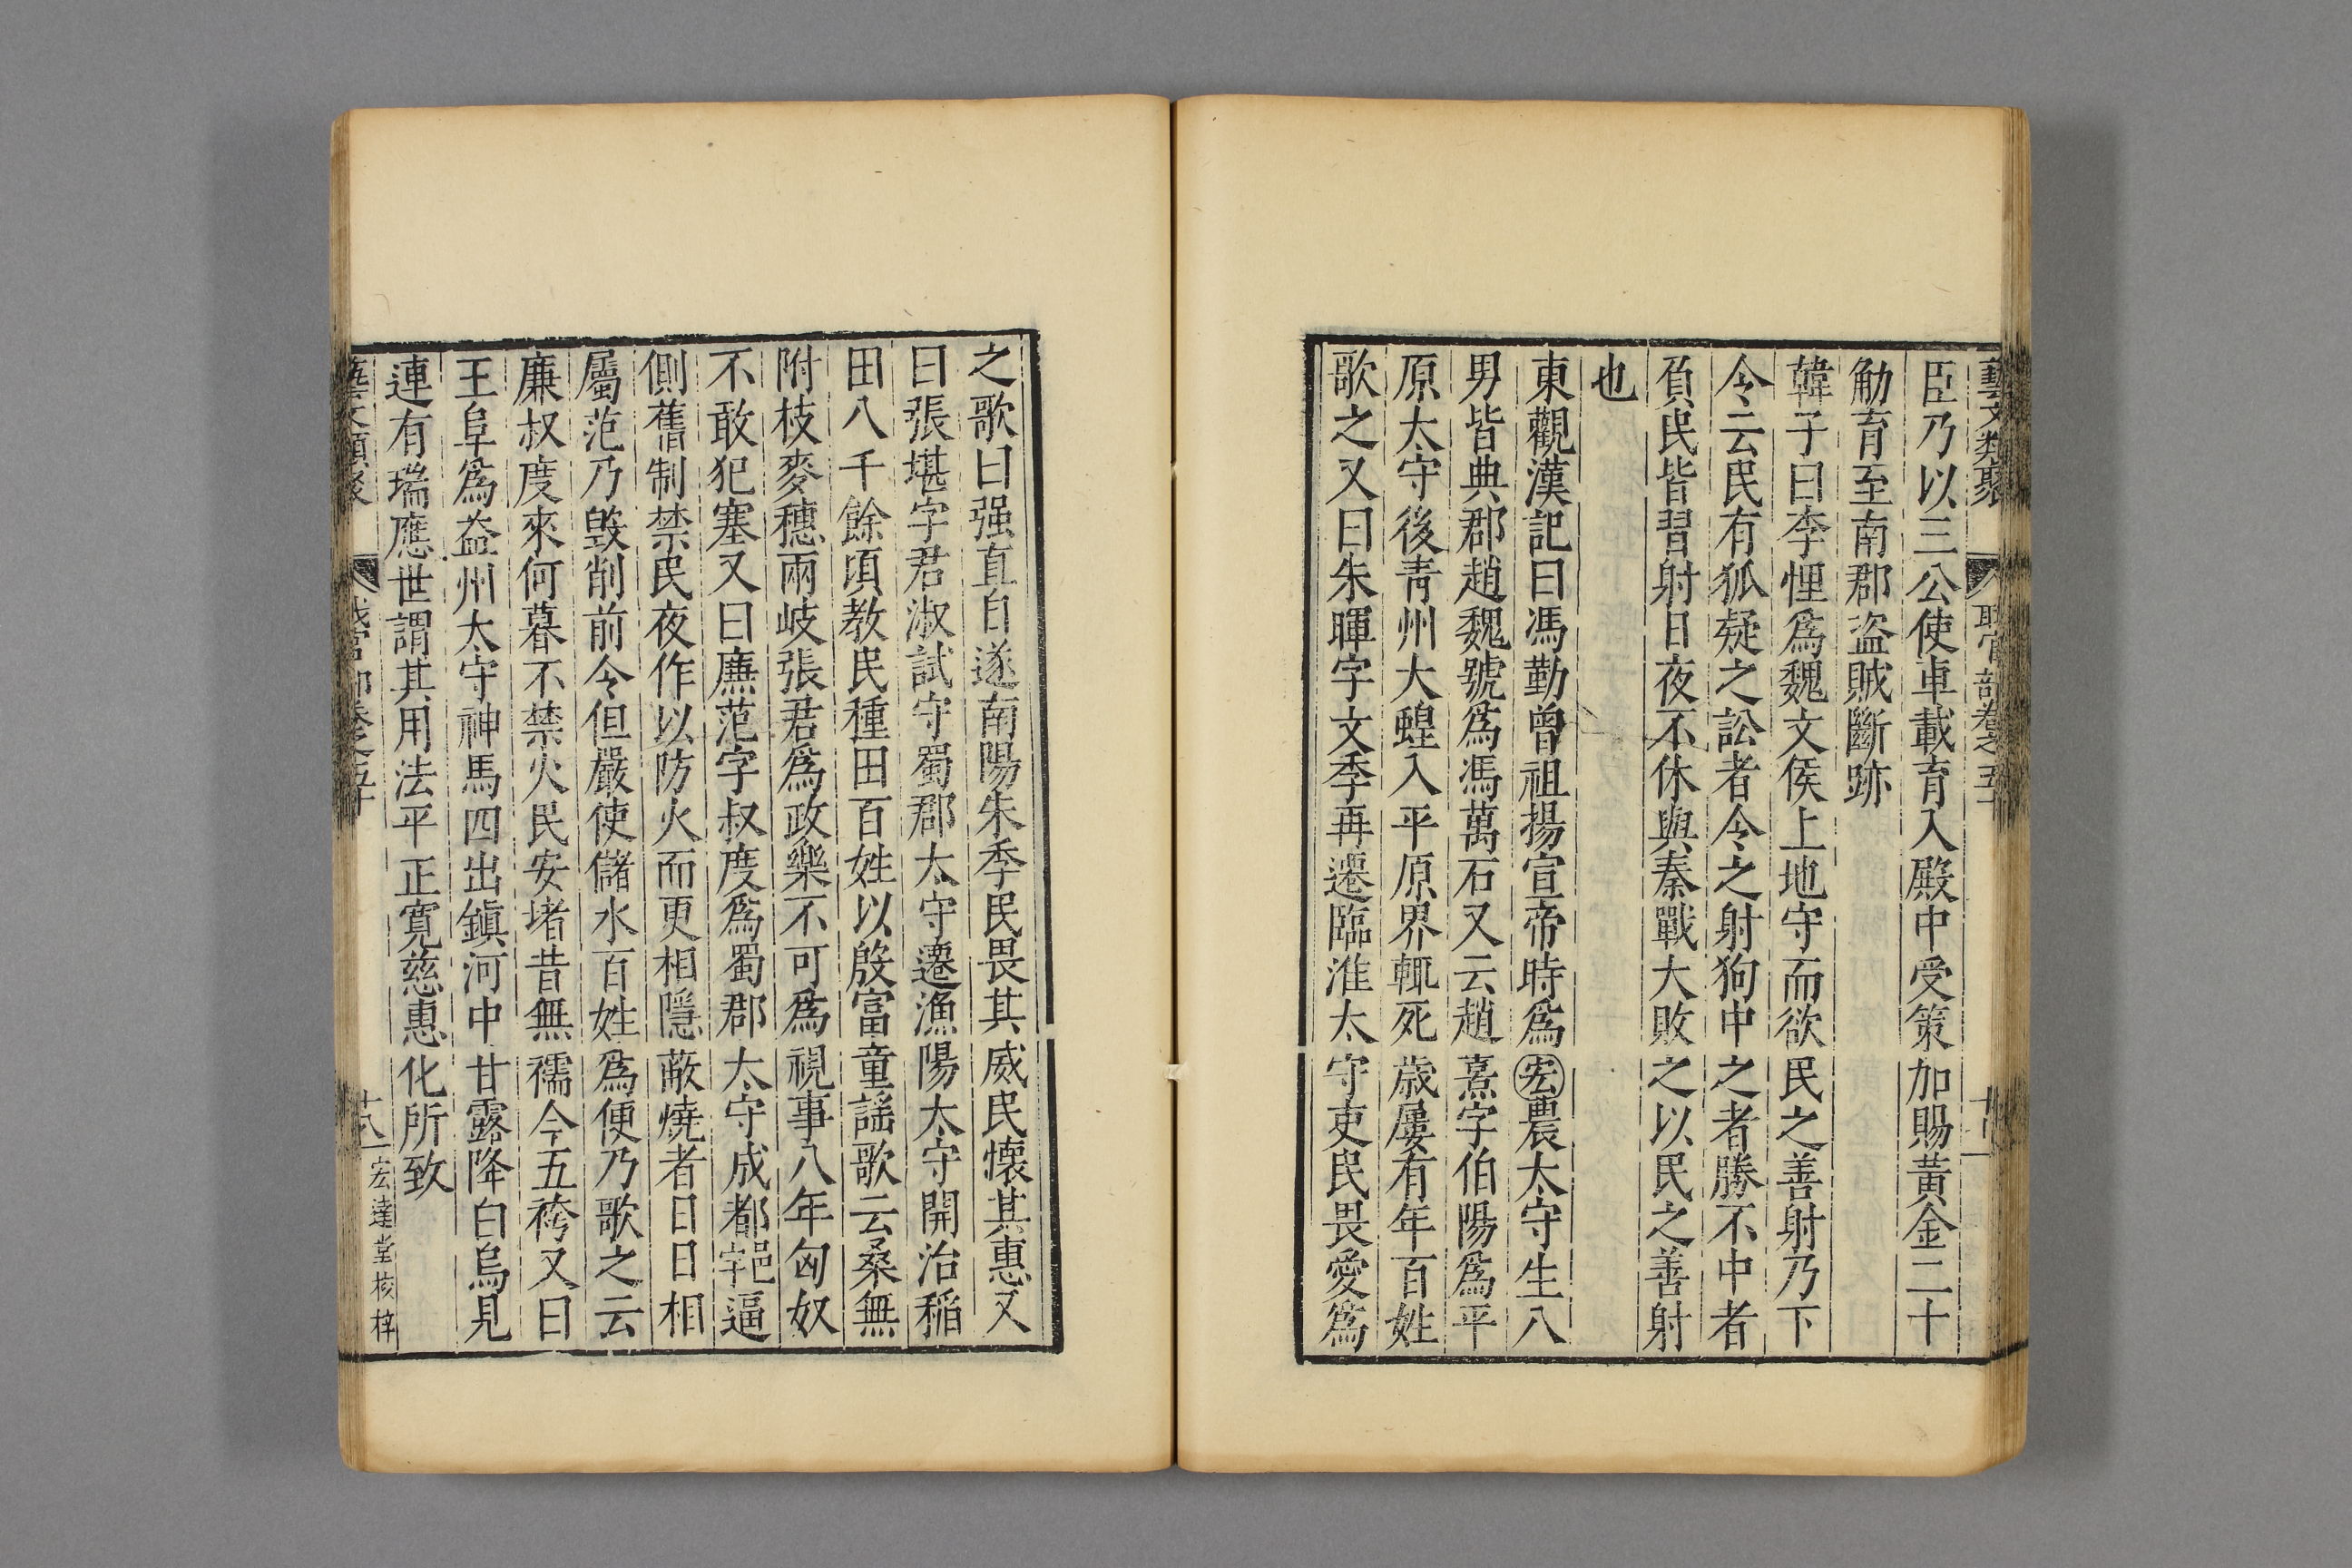 藝文類聚 職官部卷之五十
臣乃以三公使車載育入殿中受策加賜黃金二十
觔育至南郡盜賊斷跡
韓子曰李悝爲魏文侯上地守而欲民之善射乃下
令云民有狐疑之訟者令之射狗中之者勝不中者
負民皆習射日夜不休與秦戰大敗之以民之善射
也
東觀漢記曰馮勤曾祖揚宣帝時爲宏農太守生八
男皆典郡趙魏號爲馮萬石又云趙熹字伯陽爲平
原太守後靑州大蝗入平原界輒死歲屢有年百姓
歌之又曰朱暉字文季再遷臨淮太守吏民畏愛爲
之歌曰强直自遂南陽朱季民畏其威民懷其惠又
曰張堪字君淑試守蜀郡太守遷漁陽太守開治稻
田八千餘頃教民種田百姓以殷富童謠歌云桑無
附枝麥穗兩岐張君爲政樂不可爲視事八年匈奴
不敢犯塞又曰廉范字叔度爲蜀郡太守成都邑宇逼
側舊制禁民夜作以防火而更相隱蔽燒者日日相
屬范乃毀削前令但嚴使儲水百姓爲便乃歌之云
廉叔度來何暮不禁火民安堵昔無襦今五袴又曰
王阜爲益州太守神馬四出鎭河中甘露降白烏見
連有瑞應世謂其用法平正寬慈惠化所致
藝文類聚 職官部卷之五十 十八 宏達堂核梓